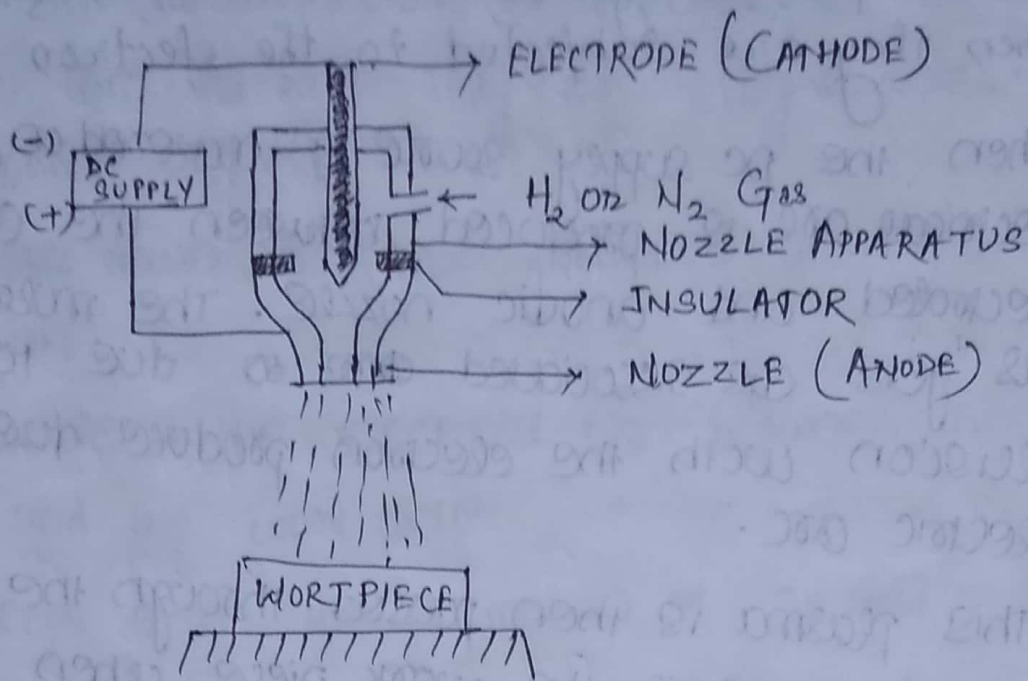 ELECTRODE (CATHODE)
(-)
DC
SUPPLY
(+)
H₂ or N₂ Gas
NOZZLE APPARATUS
INSULATOR
NOZZLE (ANODE)
WORTPIECE